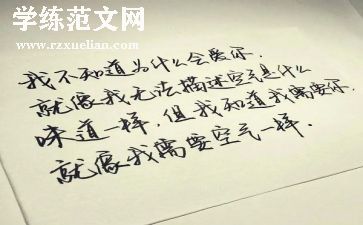 学练范文网
www.rzxuelian.com
我不知道为什么会爱你.
就像我无法描述空气是什么
味道一样,但我知道我需要你.
就像我需要空气一样.